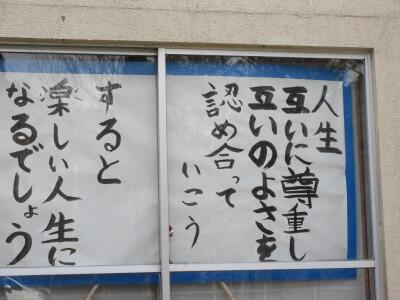 人生
互いに尊重し
互いのよさを
認め合って
いこう
すると
楽しい人生に
なるでしょう